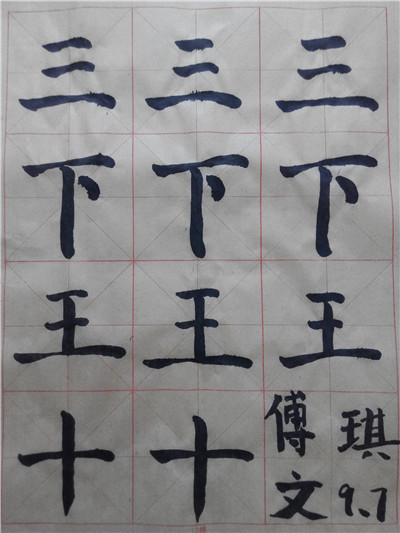 三三三
下下下
王王王
十十
傅文
琪
9.7